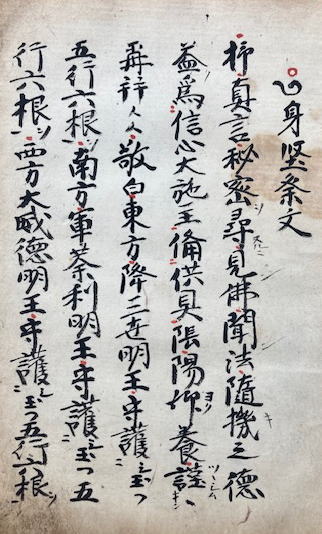 身堅条文
抑真言秘密尋見佛聞法隨機之德
益為信心大施主備供具張陽仰養謹
再拝々々敬白東方降三世明王守護シ玉フ
五行六根ヲ南方軍荼利明王守護シ玉フ五
行六根ヲ西方大威德明王守護シ玉フ五行六根ヲ